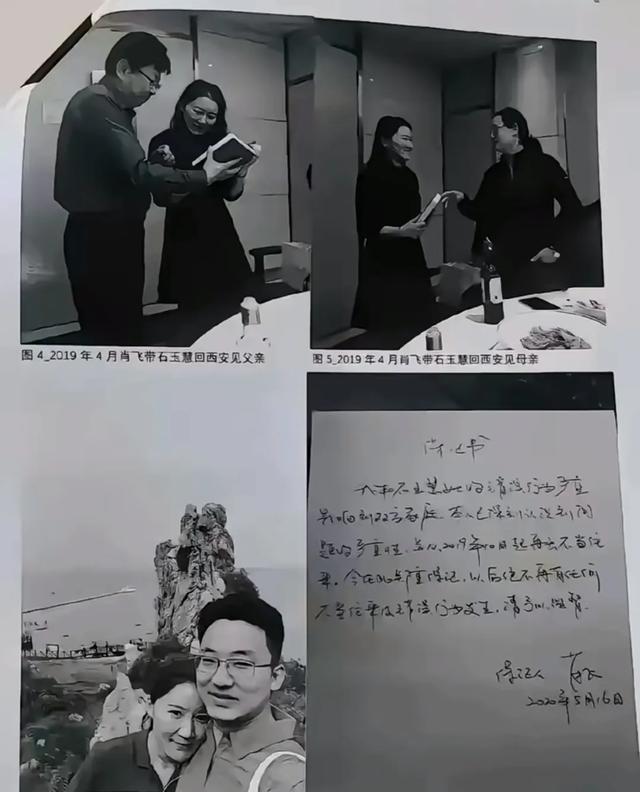 图 4_2019 年 4 月肖飞带石玉慧回西安见父亲
图 5_2019 年 4 月肖飞带石玉慧回西安见母亲
保证书
我和石玉慧的错误行为严重
影响到双方家庭。本人已深刻认识到问
题的严重性,2019年10月起再无不当往
来。今在此严重保证,以后绝不再有任何
不当往来及错误行为发生,请予以监督。
保证人 肖飞
2020年5月16日